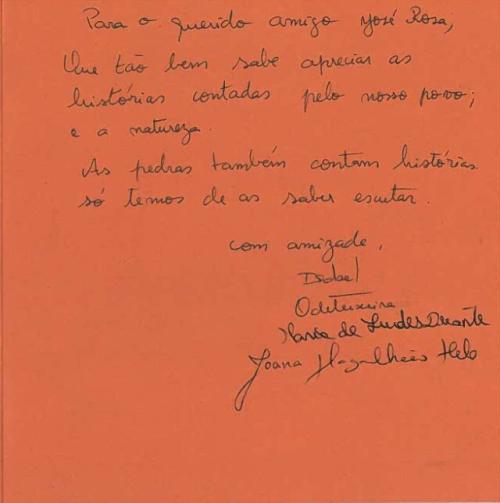 Para o querido amigo José Rosa,
Que tão bem sabe apreciar as
histórias contadas pelo nosso povo;
e a natureza.
As pedras também contam histórias
só temos de as saber escutar.
com amizade,
Isabel
Odeteixeira
Maria de Lurdes Duarte
Joana Magalhães Melo